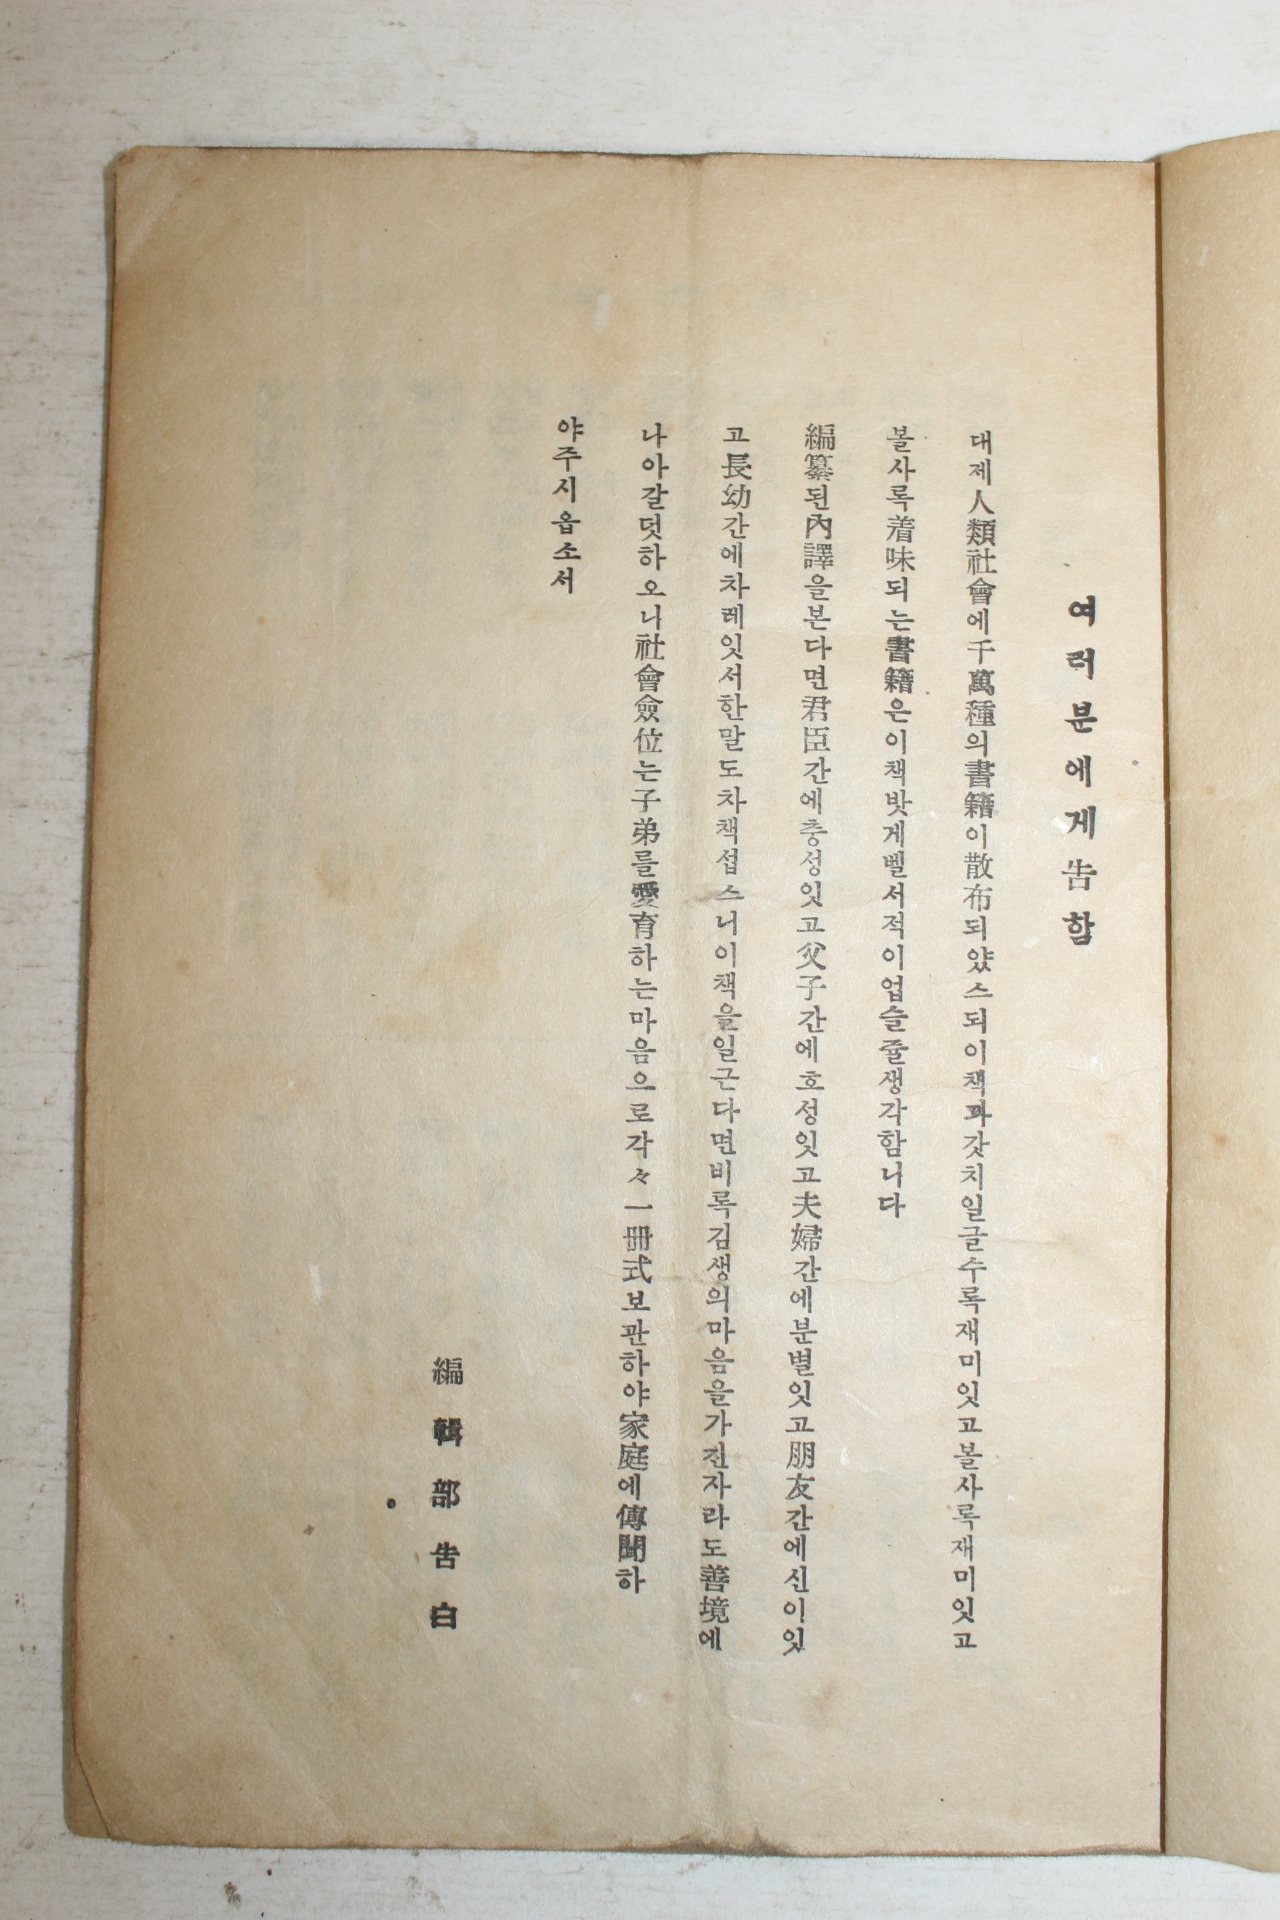 여러분에게告함
대제人類社會에千萬種의書籍이散布되얏스되이책과갓치일글수록재미잇고볼사록재미잇고
볼사록着味되는書籍은이책밧게벨서적이업슬쥴생각함니다
編纂된內譯을본다면君臣간에충성잇고父子간에호성잇고夫婦간에분별잇고朋友간에신이잇
고長幼간에차례잇서한말도차책섭스니이책을일근다면비록김생의마음을가진자라도善境에
나아갈덧하오니社會僉位는子弟를愛育하는마음으로각々一冊式보관하야家庭에傳聞하
야주시옵소서
編輯部告白